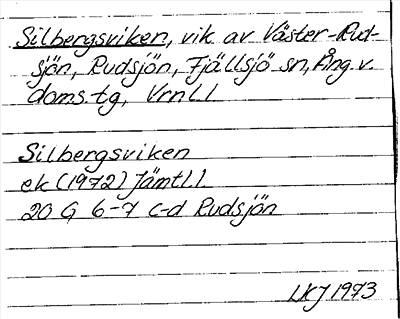 Silbergsviken, vik av Väster-Rud-
sjön, Rudsjön, Fjällsjö sn, Ång. v.
doms.tg, Vrnl.l
Silbergsviken
ek (1972) Jämtl.l.
20 G 6-7 c-d Rudsjön
LKJ 1973